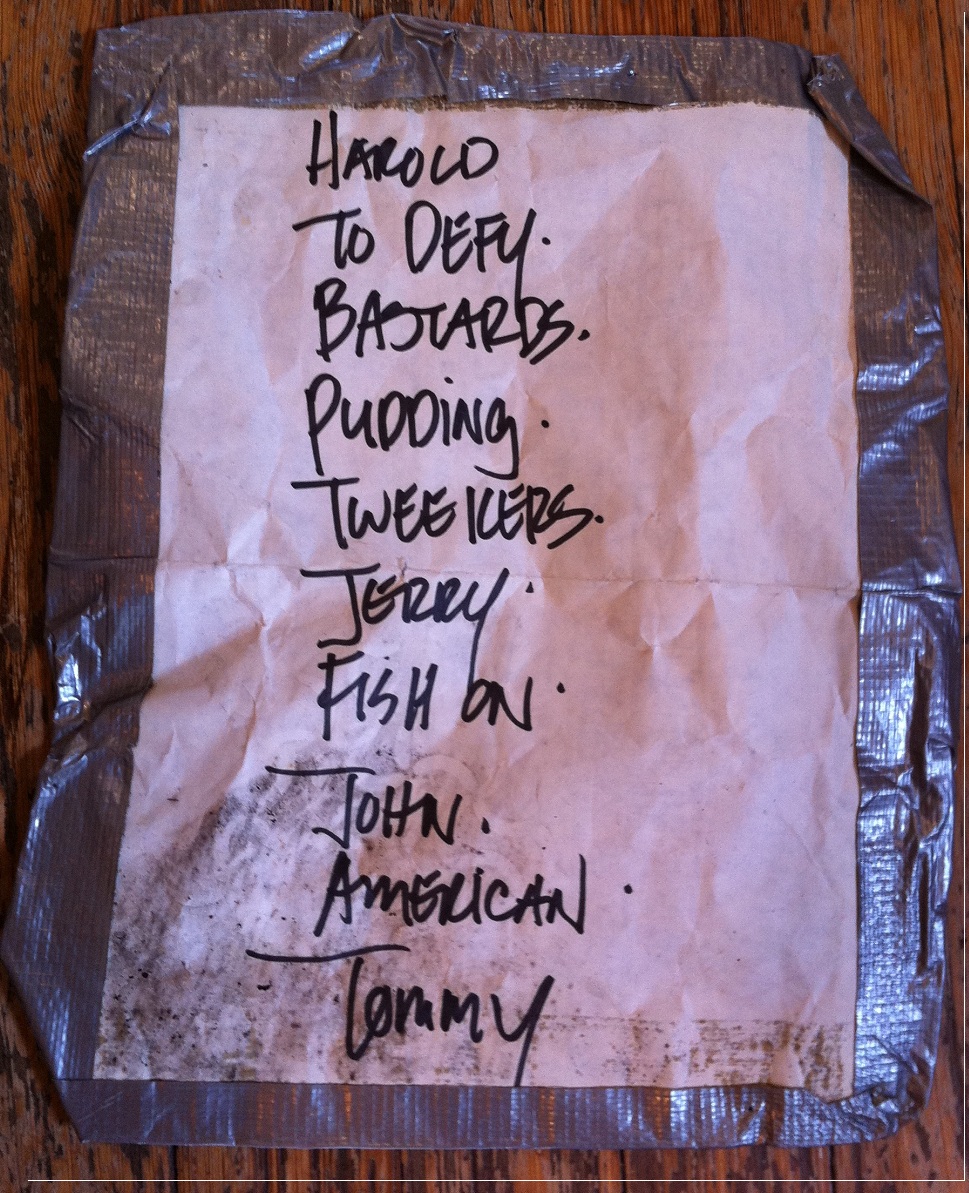 HAROLD
TO DEFY.
BASTARDS.
PUDDiNg.
TWEEKERS.
JERRY.
FiSH ON.
JOHN.
AMERICAN.
Tommy